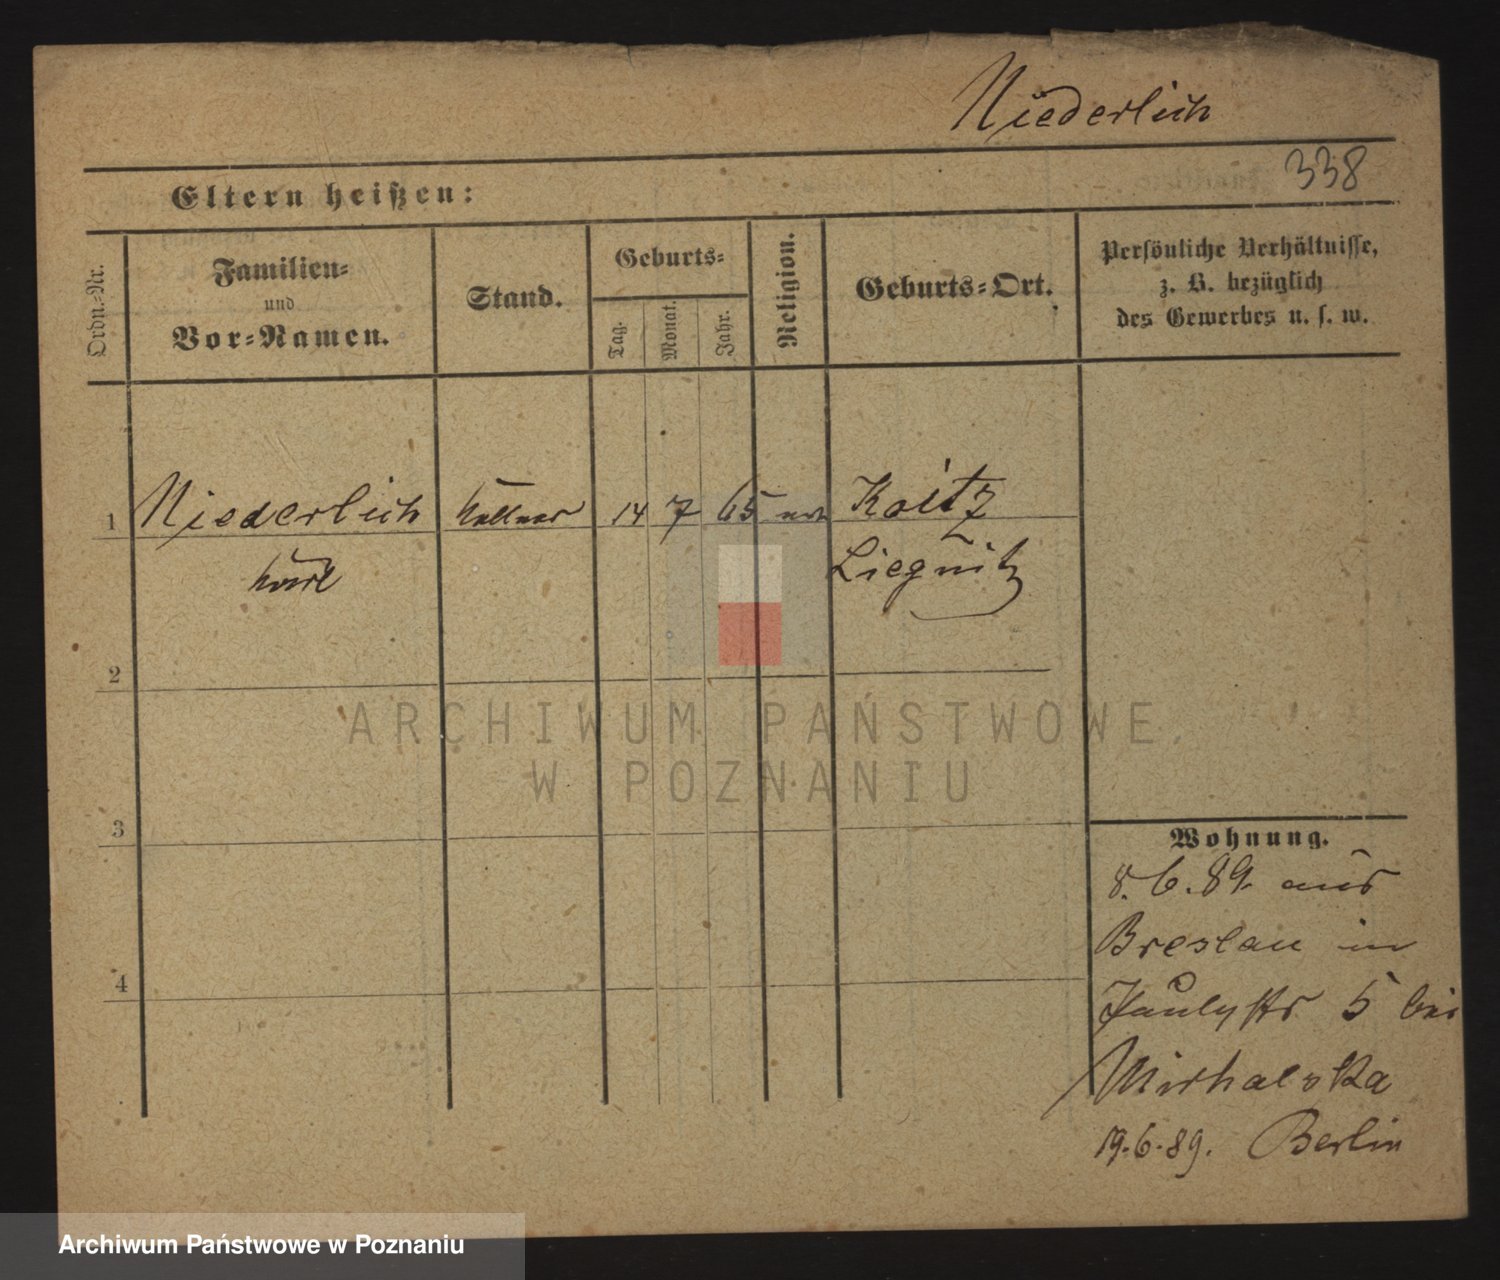 Niederlich
338
Eltern heißen:
Ordn.-Nr.
Familien-
und
Vor-Namen.
Stand.
Geburts-
Tag.
Monat.
Jahr.
Religion.
Geburts-Ort.
Persönliche Verhältnisse,
z. B. bezüglich
des Gewerbes u. s. w.
1 Niederlich Kellner 14 7 65 Koitz
Karl Liegnitz
2
3
4
Wohnung.
8.6.89. aus
Breslau in
Paulystr 5 bei
19.6.89. Berlin
ARCHIWUM PAŃSTWOWE
W POZNANIU
Archiwum Państwowe w Poznaniu